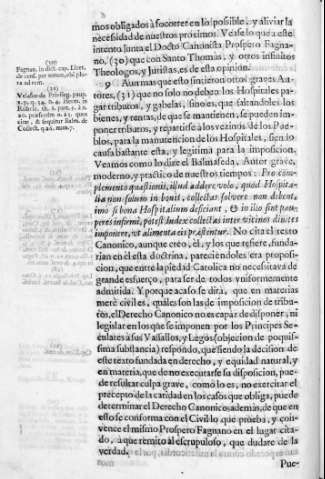 mos obligados à socorrer en lo possible, y aliviar la
necessidad de nuestros proximos. Vease lo que a este
intento junta el Docto Canonista Prospero Fagna-
no, (30) que con Santo Thomàs, y otros infinitos
Theologos, y Juristas, es de esta opinion.
9 Aun mas que esto sintieron otros graves Au-
tores, (31) que no solo no deben los Hospitales pa-
gar tributos, y gabelas, sino es, que faltandoles los
bienes, y rentas, de que se mantienen, se pueden im-
poner tributos, y repartirse à los vezinos de los Pue-
blos, para la manutencion de los Hospitales, siendo
causa bastante esta, y legitima para la imposicion.
Veamos como lo dize el Balmaseda, Autor grave,
moderno, y practico de nuestros tiempos: Pro com-
plemento quæstionis, illud addere volo, quod Hospita-
lia non solum in bonit, collectas solvere non debent,
imo si bona Hospitalium deficiant, & in illo sint pau-
peres infirmi, potest Judex collectas inter vicinos divites
imponere, ut alimenta eis præstentur. No cita el texto
Canonico, aunque creo, èl, y los que refiere, fundar-
ian en èl esta doctrina, pareciendoles era proposi-
cion, que entre la piedad Catolica no necessitava de
grande esfuerço, para ser de todos vniformemente
admitida. Y porque acaso se dirà, que en materias
merè civiles, quales son las de imposicion de tribu-
tos, el Derecho Canonico no es capàz de disponer, ni
legislar en los que se imponen por los Principes Se-
culares à sus Vassallos, y Legos (objecion de poquis-
sima substancia) respondo, que siendo la decision de
este texto fundada en derecho, y equidad natural, y
en materia, que de no executarse su disposicion, pue-
de resultar culpa grave, como lo es, no exercitar el
precepto de la caridad en los casos que obliga, puede
determinar el Derecho Canonico; ademàs, de que en
esto se conforma con el Civil lo que prueba, y con-
vence el mismo Prospero Fagnano en el lugar cita-
do, à que remito al escrupuloso, que dudare de la
verdad.
Pue-
(30)
Fagnan. in dict. cap.
(31)
Velasco de Privileg. paup.